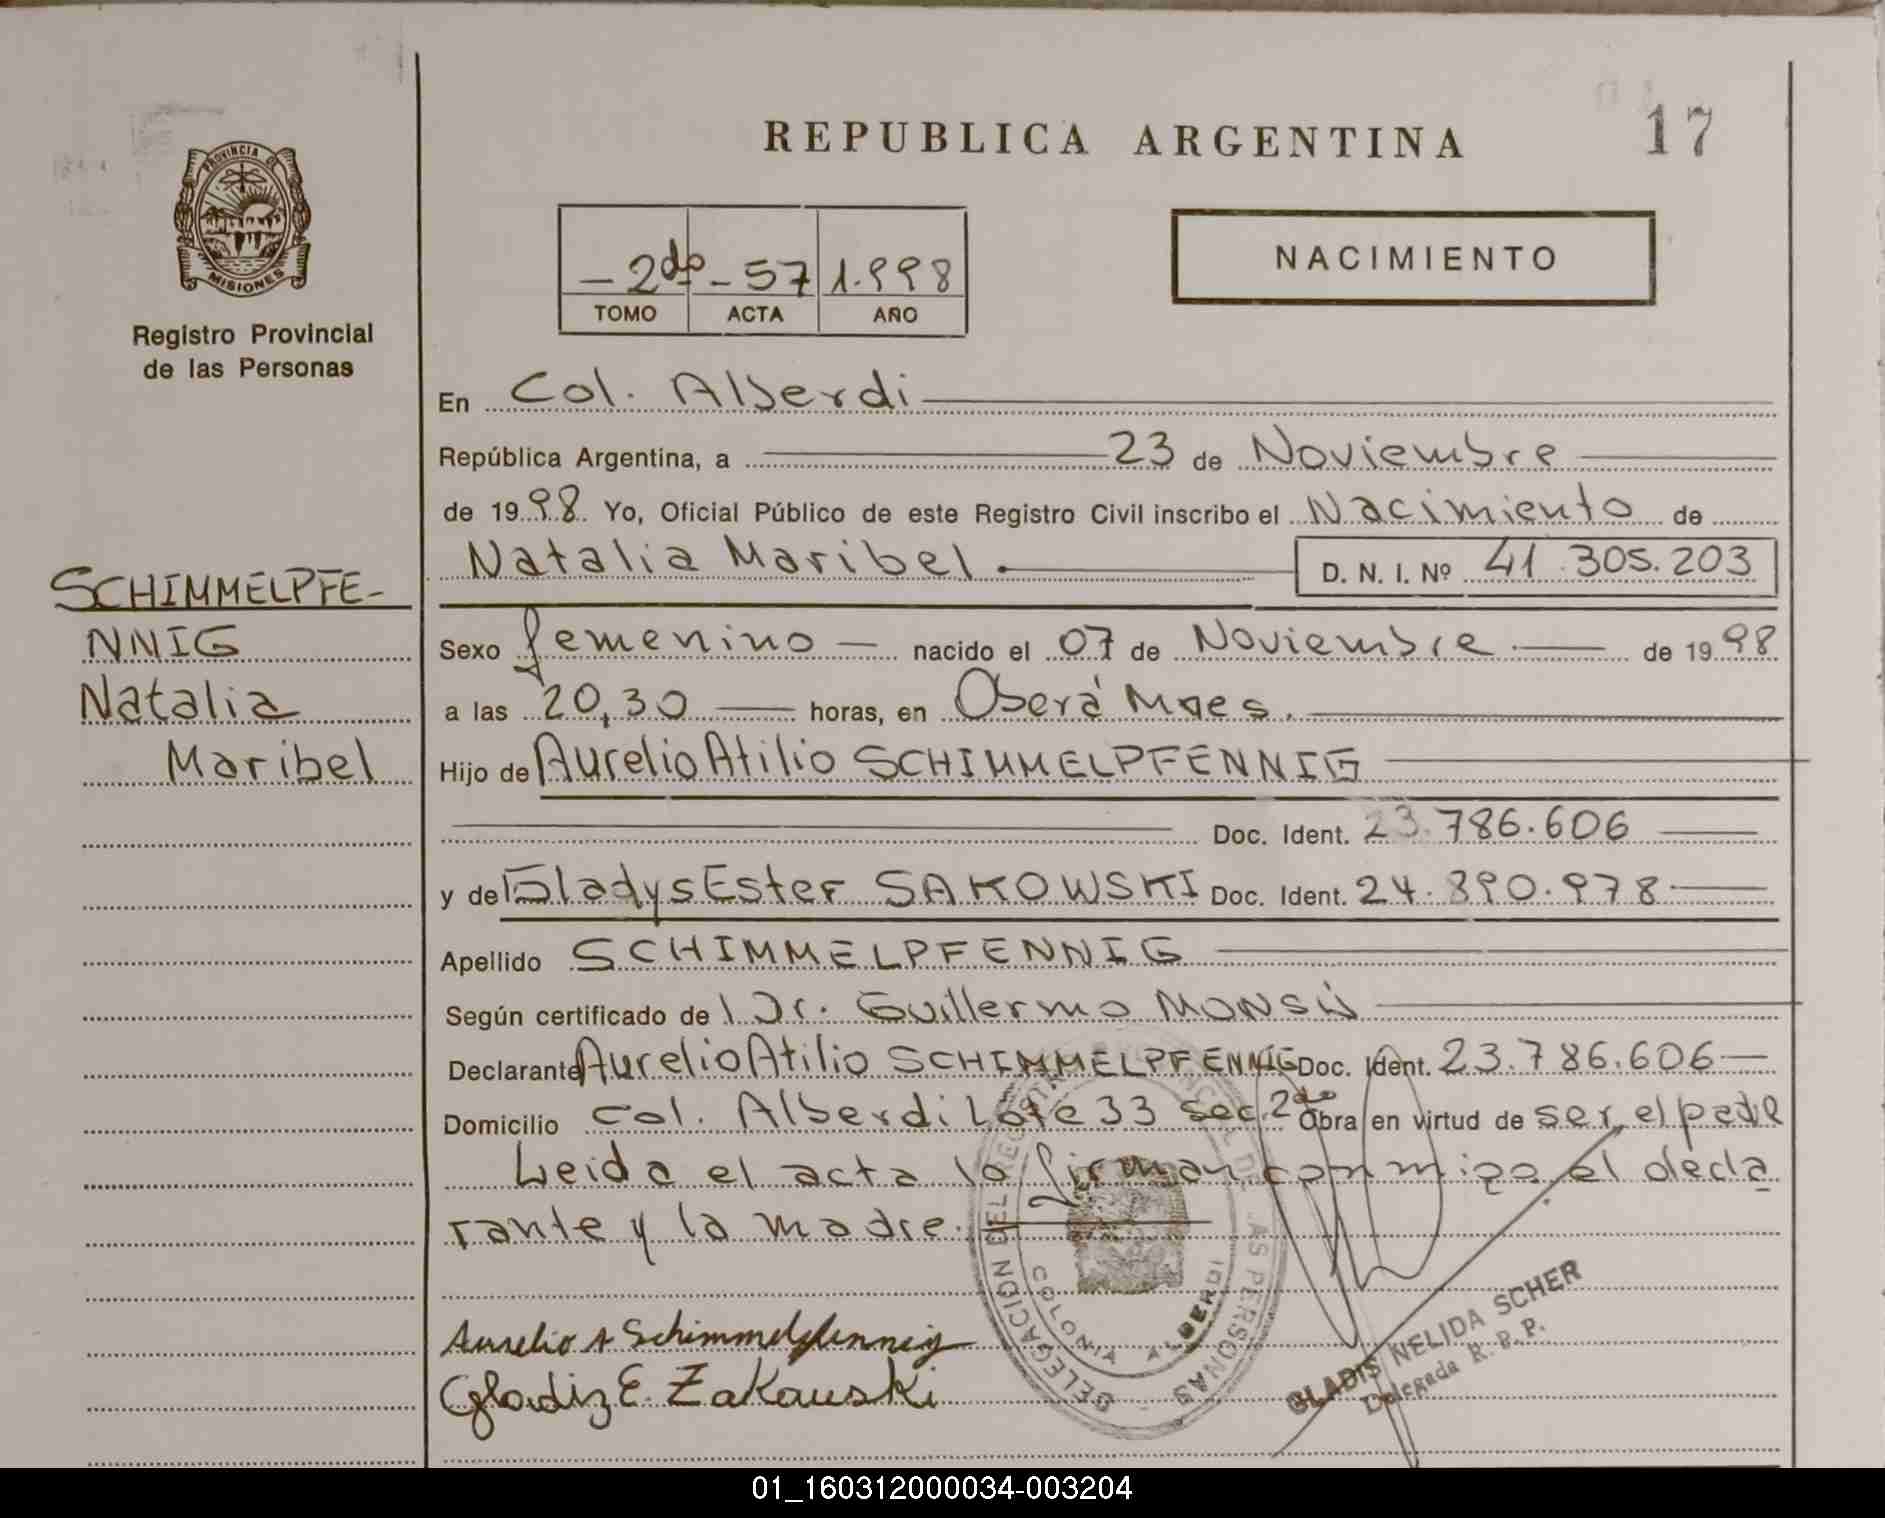 REPUBLICA ARGENTINA
17
PROVINCIA DE
MISIONES
Registro Provincial
de las Personas
NACIMIENTO
- 2do - 57 1.998
TOMO ACTA AÑO
En Col. Alberdi
República Argentina, a 23 de Noviembre
de 1998 Yo, Oficial Público de este Registro Civil inscribo el Nacimiento de
Natalia Maribel D. N. I. Nº 41.305.203
SCHIMMELPFE-
NNIG
Natalia
Maribel
Sexo femenino nacido el 07 de Noviembre de 1998
a las 20,30 horas, en Oberá Mnes.
Hijo de Aurelio Atilio SCHIMMELPFENNIG
Doc. Ident. 23.786.606
y de Gladys Ester SAKOWSKI Doc. Ident. 24.890.978
Apellido SCHIMMELPFENNIG
Según certificado de l Dr. Guillermo
Declarante Aurelio Atilio SCHIMMELPFENNIG Doc. Ident. 23.786.606
Domicilio Col. Alberdi Lote 33 sec. 2da Obra en virtud de ser el padre
Leida el acta la firman conmigo el decla
rante y la madre.
Aurelio A Schimmelpfennig
Gladiz E. Zakauski
DELEGACION DEL REGISTRO PROVINCIAL DE LAS PERSONAS
COLONIA ALBERDI
GLADIS NELIDA SCHER
Delegada R. P. P.
01_160312000034-003204